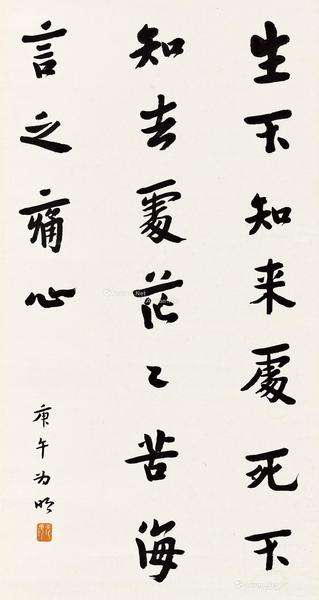 生不知来處死不
知去處茫々苦海
言之痛心
庚午为明